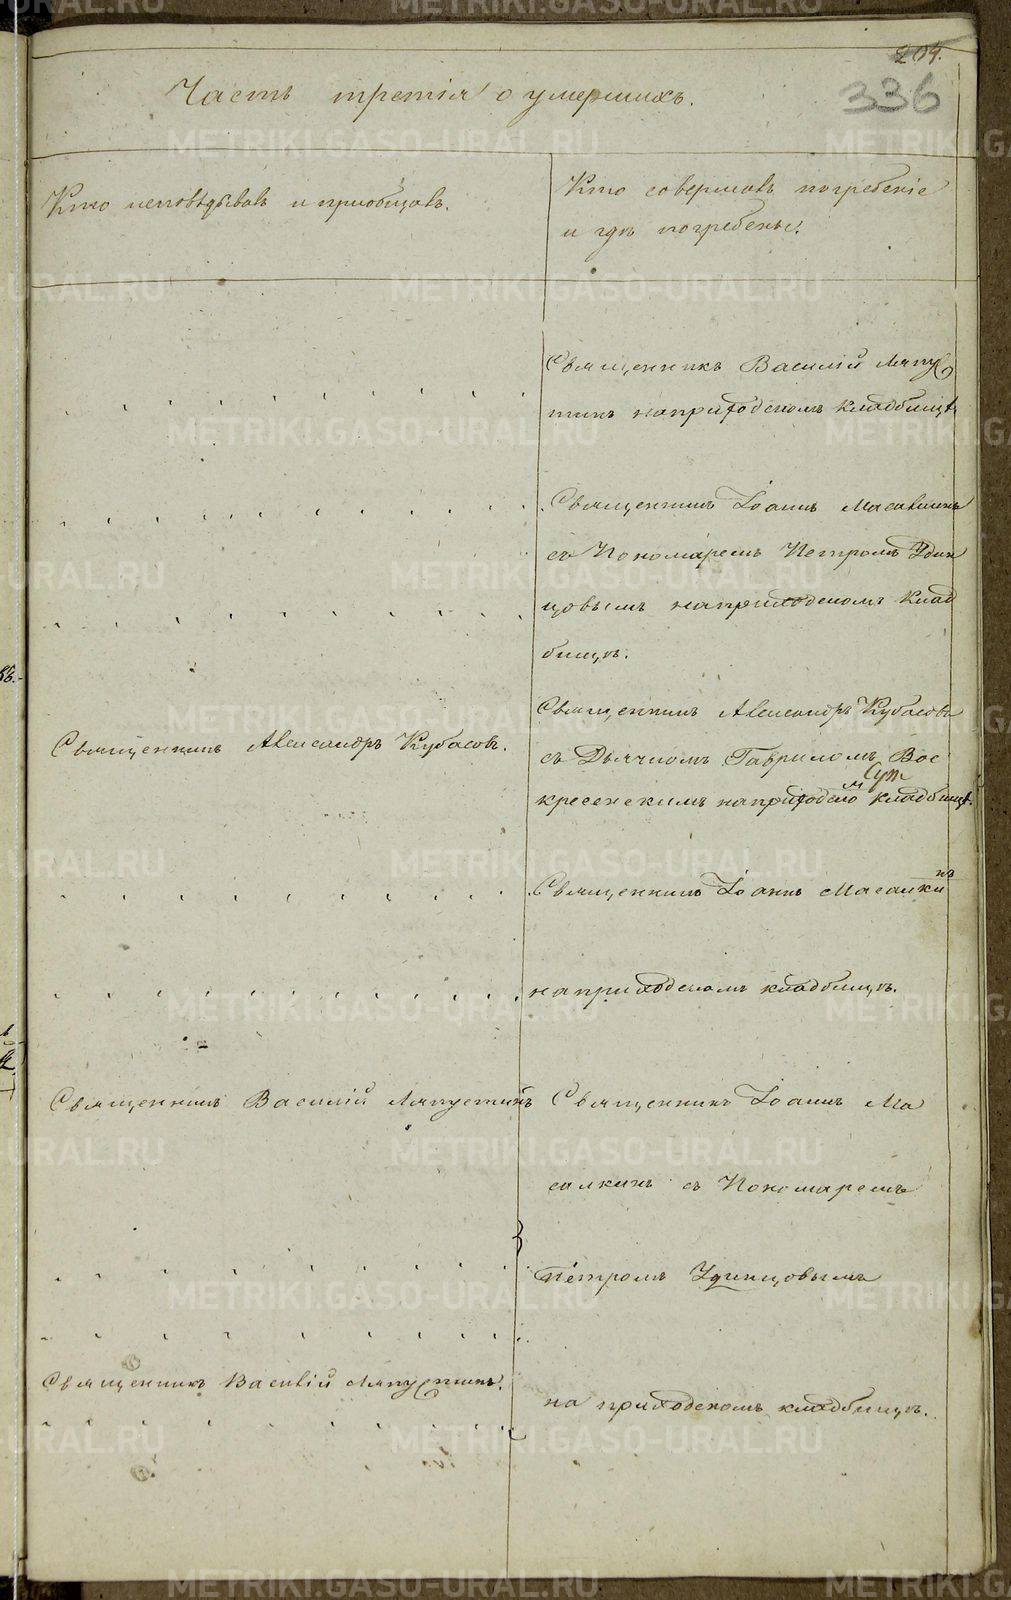 204.
336
Часть третія о умершихъ.
Кто исповѣдывалъ и пріобщалъ.
Кто совершалъ погребеніе
и гдѣ погребены.
Священникъ Василій Ляпу
тинъ на приходскомъ кладбищѣ
Священникъ Іоаннъ Масалкинъ
съ Пономаремъ Петромъ Удин
цовымъ на приходскомъ клад
бищѣ.
Священникъ Александръ Кубасовъ.
Священникъ Александръ Кубасовъ
съ Дьячкомъ Гавриломъ Вос
кресенскимъ на приходском кладбищѣ.
Священникъ Іоаннъ Масалкинъ
на приходскомъ кладбищѣ.
Священникъ Василій Ляпустинъ
Священникъ Іоаннъ Ма
салкинъ съ Пономаремъ
Петромъ Удинцовымъ
Священникъ Василій Ляпустинъ.
на приходскомъ кладбищѣ.
METRIKI.GASO-URAL.RU